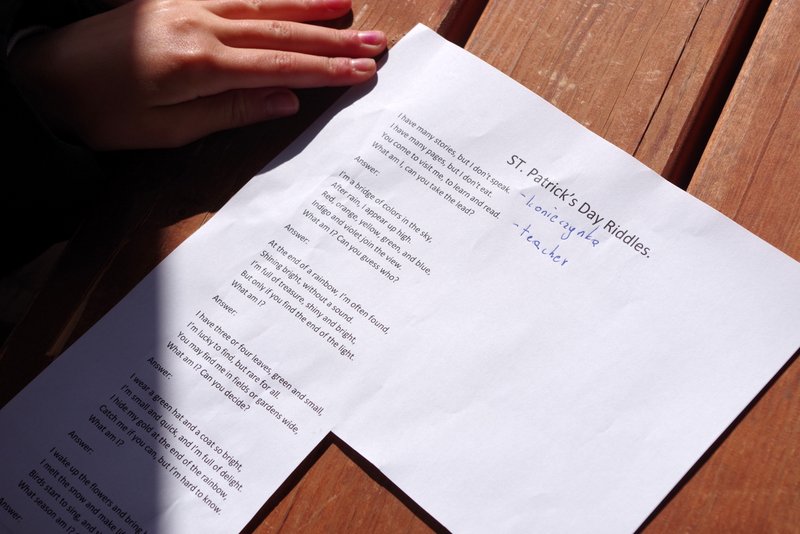 ST. Patrick's Day Riddles.
- koniczynka
- teacher
I have many stories, but I don't speak.
I have many pages, but I don't eat.
You come to visit me, to learn and read.
What am I, can you take the lead?
Answer:
I'm a bridge of colors in the sky,
After rain, I appear up high.
Red, orange, yellow, green, and blue,
Indigo and violet join the view.
What am I? Can you guess who?
Answer:
At the end of a rainbow, I'm often found,
Shining bright, without a sound.
I'm full of treasure, shiny and bright,
But only if you find the end of the light.
What am I?
Answer:
I have three or four leaves, green and small,
I'm lucky to find, but rare for all.
You may find me in fields or gardens wide,
What am I? Can you decide?
Answer:
I wear a green hat and a coat so bright,
I'm small and quick, and I'm full of delight.
I hide my gold at the end of the rainbow,
Catch me if you can, but I'm hard to know.
What am I?
Answer:
I wake up the flowers and bring
I melt the snow and make
Birds start to sing, and
What season am I?
Answer: